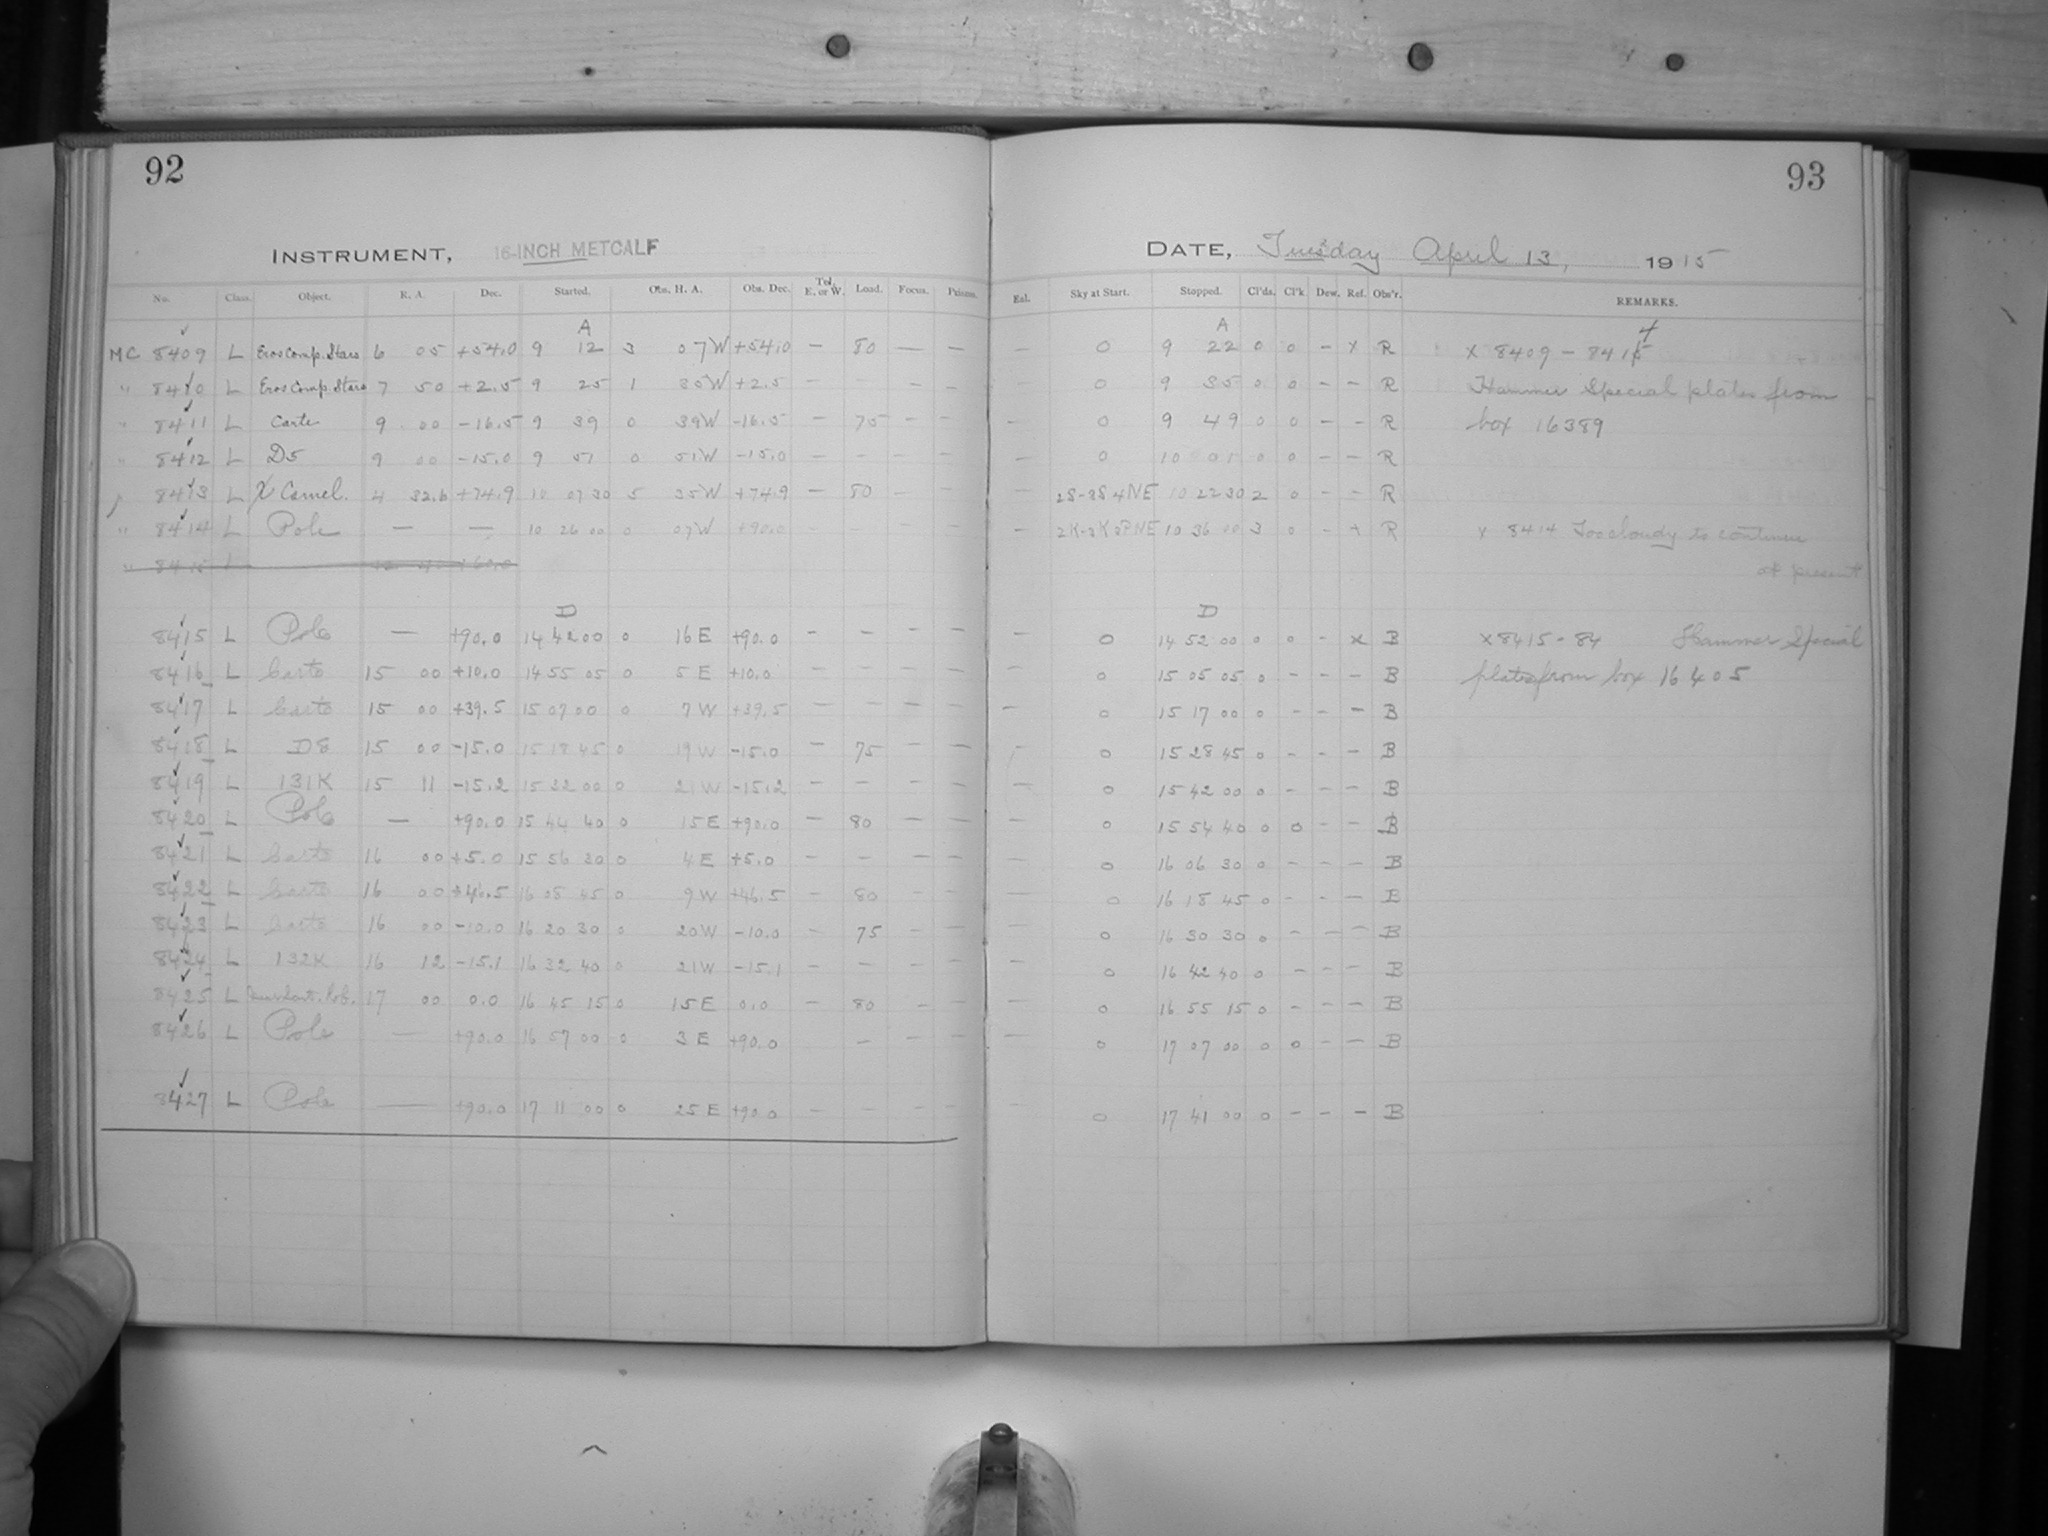 92
INSTRUMENT, 16-INCH METCALF
No. Class. Object. R. A. Dec. Started. Obs. H. A. Obs. Dec. Tel. E. or W. Load. Focus. Prisms.
A
MC 8409 L Eros Comp. Stars 6 05 +54.0 9 12 3 07 W +54.0 — 80 — —
" 8410 L Eros Comp. Stars 7 50 +2.5 9 25 1 35 W +2.5 — — —
" 8411 L Carte 9 00 -16.5 9 39 0 39 W -16.5 — 75 — —
" 8412 L D5 9 00 -15.0 9 51 0 51 W -15.0 — — — —
" 8413 L X Camel. 4 32.6 +74.9 10 07 30 5 35 W +74.9 — 80 — —
" 8414 L Pole — — 10 26 00 0 07 W +90.0 — — — —
" 8415 L
D
8415 L Pole — +90.0 14 42 00 0 16 E +90.0 — — — —
8416 L Carte 15 00 +10.0 14 55 05 0 5 E +10.0 — — — —
8417 L Carte 15 00 +39.5 15 07 00 0 7 W +39.5 — — — —
8418 L D8 15 00 -15.0 15 18 45 0 19 W -15.0 — 75 — —
8419 L 131K 15 11 -15.2 15 32 00 0 21 W -15.2 — — — —
8420 L Pole — +90.0 15 44 40 0 15 E +90.0 — 80 — —
8421 L Carte 16 00 +5.0 15 56 30 0 4 E +5.0 — — — —
8422 L Carte 16 00 +46.5 16 08 45 0 9 W +46.5 — 80 — —
8423 L Carte 16 00 -10.0 16 20 30 0 20 W -10.0 — 75 — —
8424 L 132K 16 12 -15.1 16 32 40 0 21 W -15.1 — — — —
8425 L 17 00 0.0 16 45 15 0 15 E 0.0 — 80 — —
8426 L Pole — +90.0 16 57 00 0 3 E +90.0 — — —
8427 L Pole — +90.0 17 11 00 0 25 E +90.0 — — — —
93
DATE, Tuesday April 13, 1915
Eal. Sky at Start. Stopped. Cl'ds. Cl'k. Dew. Ref. Obs'r. REMARKS.
A 4
— 0 9 22 0 0 — x R x 8409 - 8415
— 0 9 35 0 0 — — R Hammer Special plates from
— 0 9 49 0 0 — — R box 16389
— 0 10 01 0 0 — — R
— 2S-3S 4NE 10 22 30 2 0 — — R
— 10 36 00 3 0 — x R x 8414 Too cloudy to continue
at present
D
— 0 14 52 00 0 0 — x B x 8415 - 84 Hammer Special
— 0 15 05 05 0 — — — B plates from box 16405
— 0 15 17 00 0 — — — B
0 15 28 45 0 — — — B
0 15 42 00 0 — — — B
— 0 15 54 40 0 0 — — B
— 0 16 06 30 0 — — — B
— 0 16 18 45 0 — — — B
— 0 16 30 30 0 — — — B
— 0 16 42 40 0 — — — B
— 0 16 55 15 0 — — — B
— 0 17 07 00 0 0 — — B
— 0 17 41 00 0 — — — B